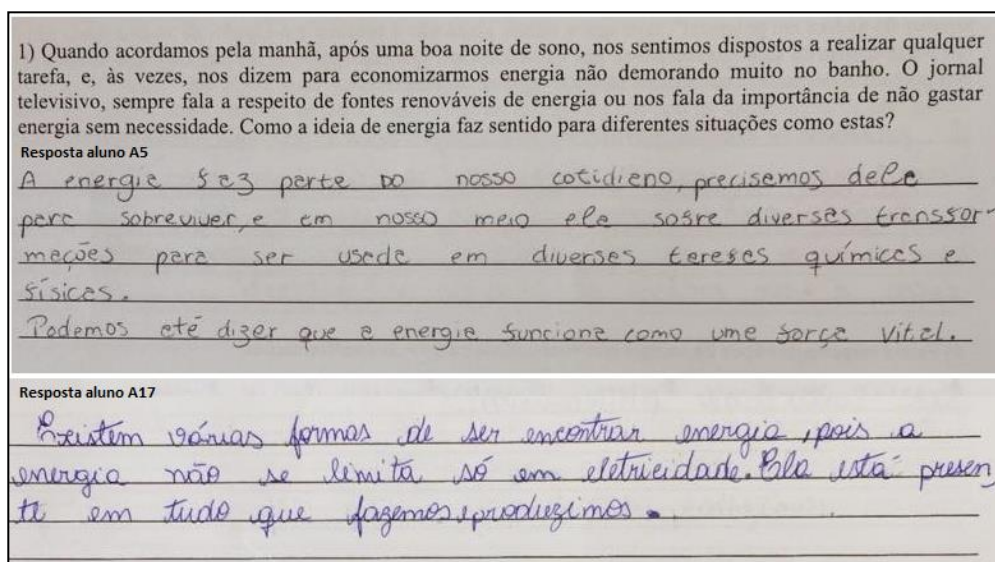 1) Quando acordamos pela manhã, após uma boa noite de sono, nos sentimos dispostos a realizar qualquer
tarefa, e, às vezes, nos dizem para economizarmos energia não demorando muito no banho. O jornal
televisivo, sempre fala a respeito de fontes renováveis de energia ou nos fala da importância de não gastar
energia sem necessidade. Como a ideia de energia faz sentido para diferentes situações como estas?
Resposta aluno A5
A energia faz parte DO nosso cotidiano, precisamos dela
para sobreviver, e em nosso meio ela sofre diversas transfor-
mações para ser usada em diversas tarefas químicas e
físicas.
Podemos até dizer que a energia funciona como uma força vital.
Resposta aluno A17
Existem várias formas de ser encontrar energia, pois a
energia não se limita só em eletricidade. Ela está presen
te em tudo que fazemos, produzimos.